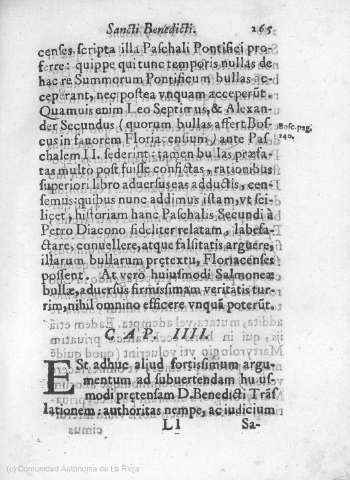 Sancti Benedicti. 265
censes scripta illa Paschali Pontifici pro-
ferre: quippe qui tunc temporis nullas de
hac re Summorum Pontificum bullas ac-
ceperant, nec postea vnquam acceperũt.
Quamuis enim Leo Septimus, & Alexan-
der Secundus (quorum bullas affert Bos-
cus in fauorem Floriacensium) ante Pas-
chalem II. sederint: tamen bullas præfa-
tas multo post fuisse confictas, rationibus
superiori libro aduersus eas adductis, cen-
semus: quibus nunc addimus istam, vt sci-
licet, historiam hanc Paschalis Secundi à
Petro Diacono fideliter relatam, labefa-
ctare, conuellere, atque falsitatis arguere,
illarum bullarum prætextu, Floriacenses
possent. At verò huiusmodi Salmoneæ
bullæ, aduersus firmissimam veritatis tur-
rim, nihil omnino efficere vnquã poterũt.
Bosc. pag.
240.
CAP. IIII.
Est adhuc aliud fortissimum argu-
mentum ad subuertendam hu us-
modi prętensam D. Benedicti Trãs
lationem: authoritas nempe, ac iudicium
Ll Sa-
(c) Comunidad Autónoma de La Rioja